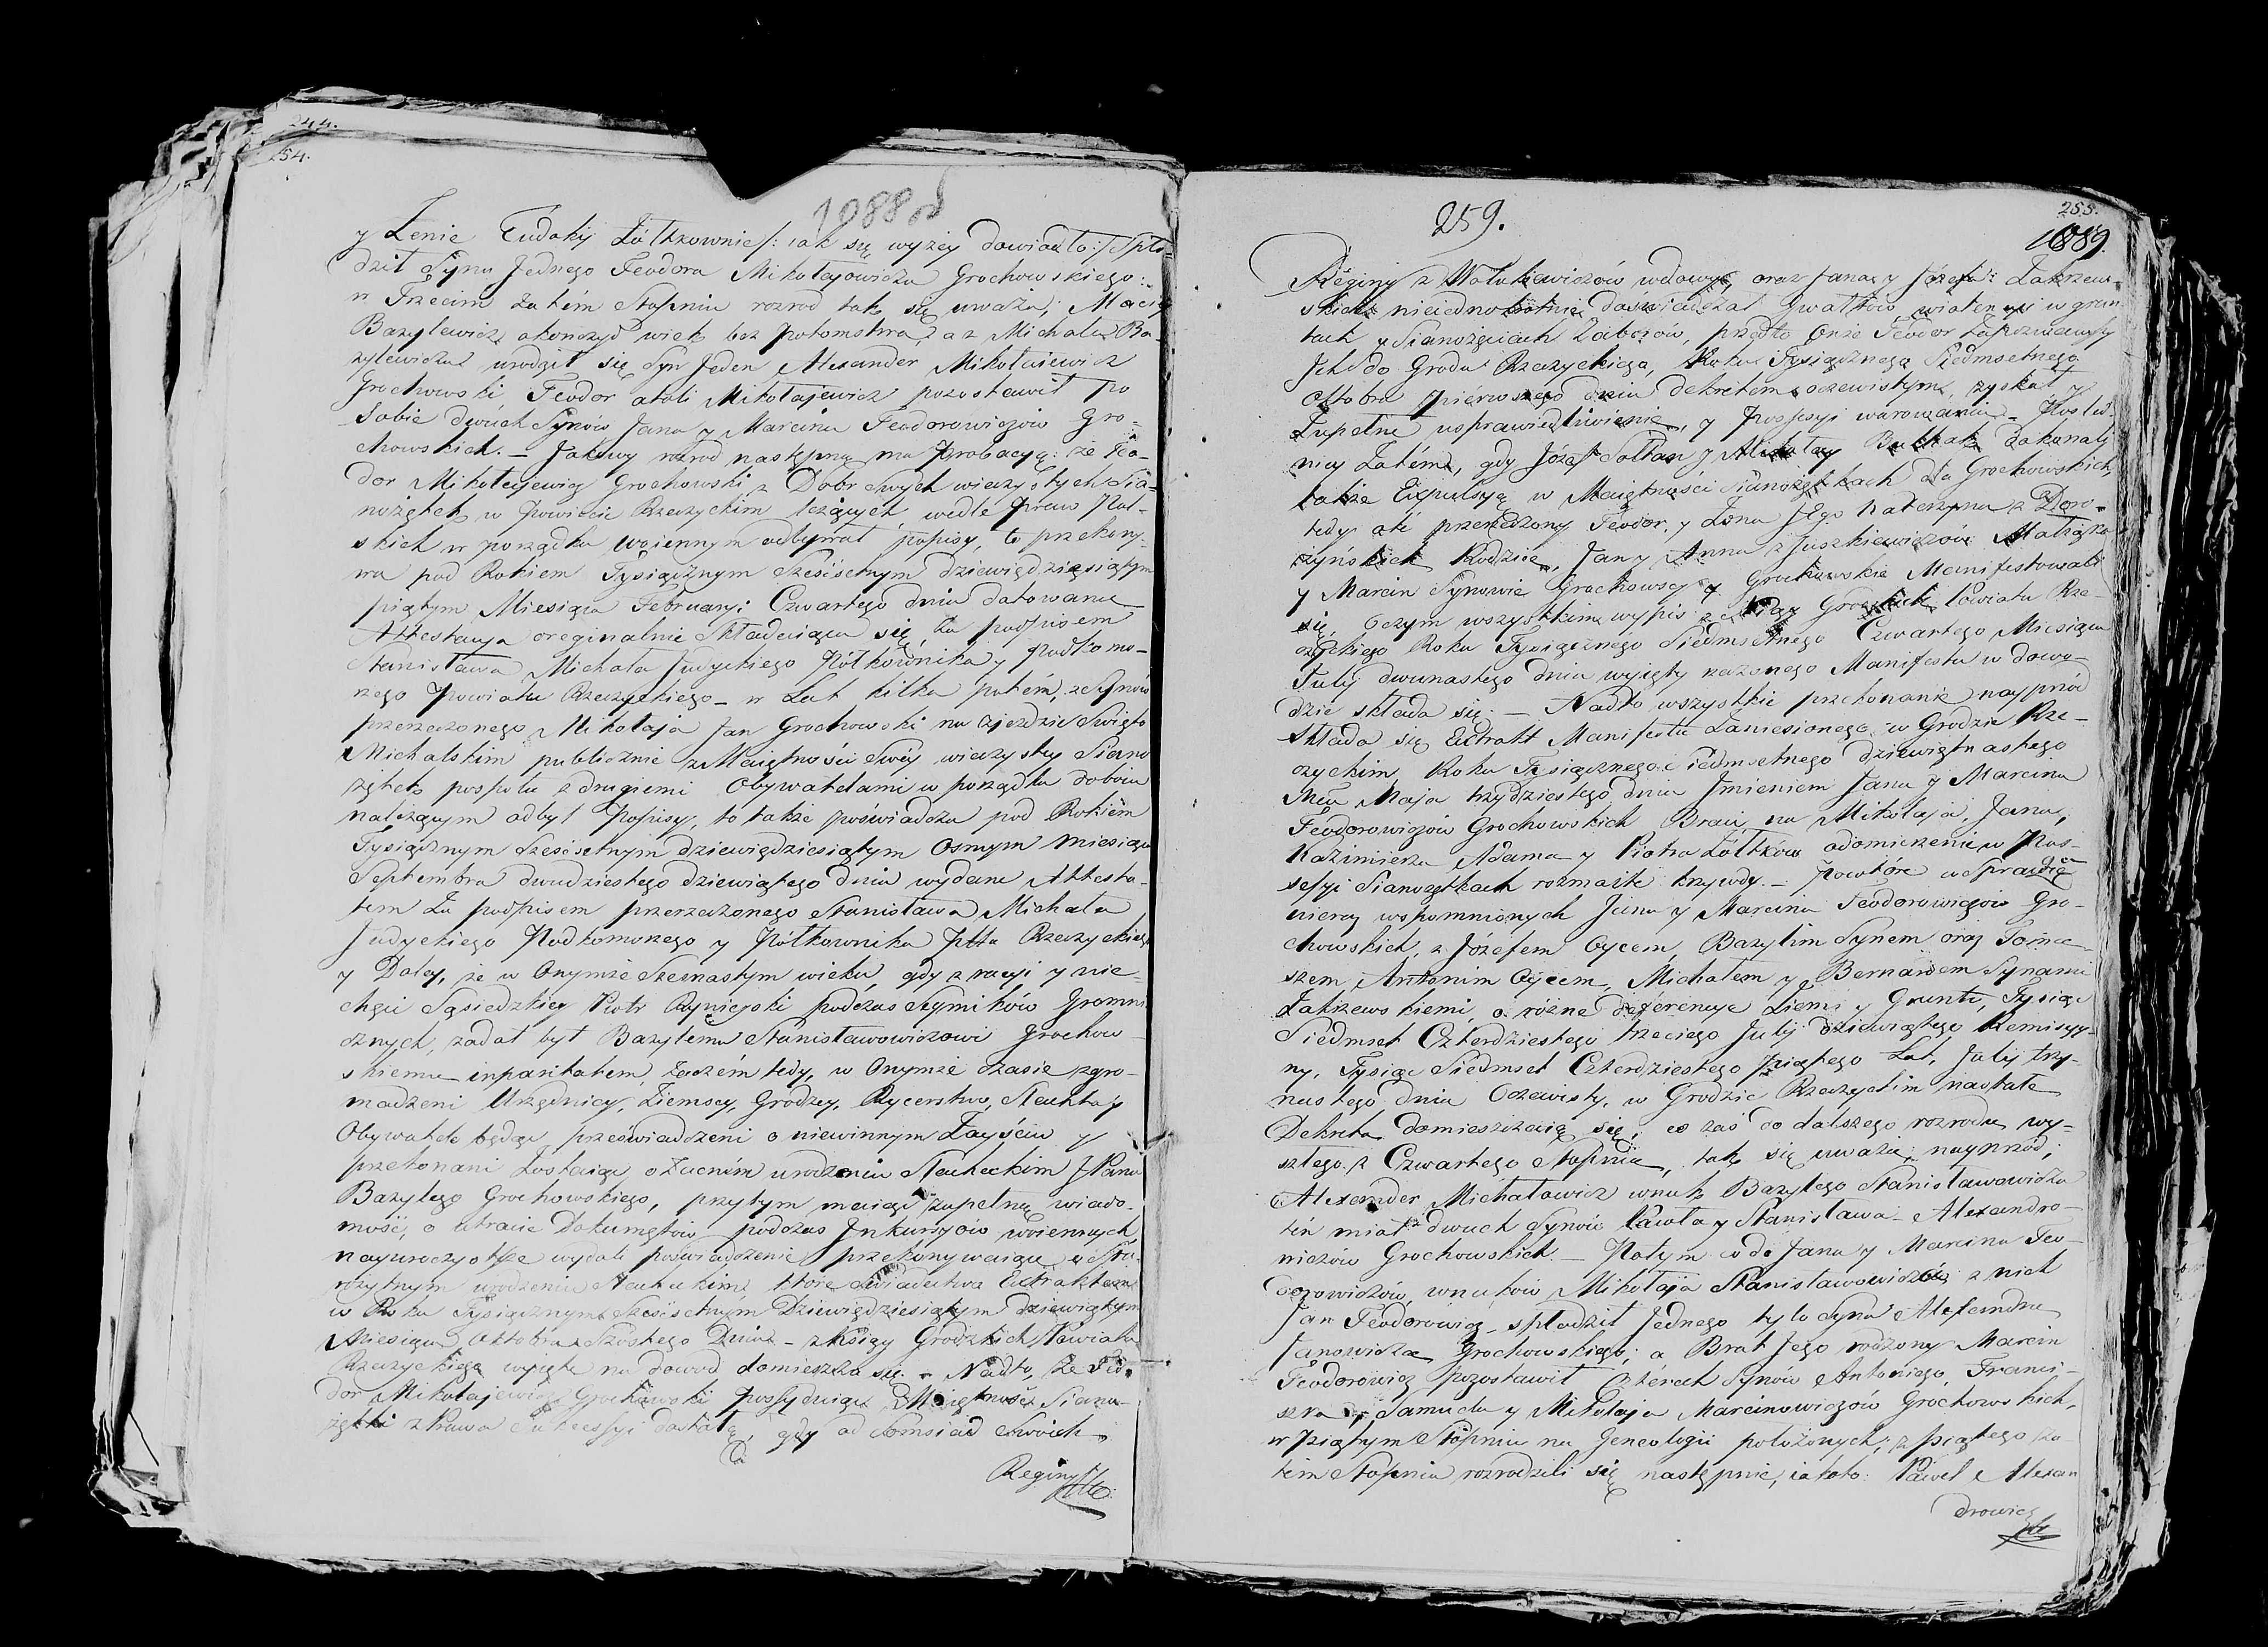 244.
254.
1088 od
y Żenie Eudoksij Żółtkownie /: iak się wyżey dowiodło :/ spło-
dził Syna Jednego Teodora Mikołajowicza Grochowskiego:
w Trzecim zatém Stopniu rozrod tak się uważa; Maciey
Bazylewicz skończył wiek bez potomstwa, a z Michała Ba-
zylewicza urodził się Syn Jeden Alexander Mikołaiewicz
Grochowski Teodor atoli Mikołajewicz pozostawił po
sobie dwóch Synów Jana y Marcina Teodorowiczów Gro-
chowskich. — Jakowy rozrod następną ma Probacyą: że Teo-
dor Mikołajewicz Grochowski z Dobr swych wieczystych Sia-
nożątek w Powiecie Rzeczyckim leżących wedle Praw Pol-
skich w porządku woiennym odbywał popisy, to przekony-
wa pod Rokiem Tysiącznym Sześćsetnym dziewiędziesiątym
piątym Miesiąca Februaryi Czwartego dnia datowana
Attestacya oreginalnie składaiąca się, za podpisem
Stanisława Michała Judyckiego Półkownika y Podkomo-
rzego Powiatu Rzeczyckiego — w Lat kilka potém, z Synów
przerzeczonego Mikołaja Jan Grochowski na zjezdzie Święto
Michalskim publicznie z Maiętności Swéy wieczystey Siano
żątek pospołu z drugiemi Obywatelami w porządku doboiu
należącym odbył Popisy, to także poświadcza pod Rokiem
Tysiącznym Sześćsetnym dziewiędziesiątym Osmym Miesiąca
Septembra dwudziestego dziewiątego dnia wydane Attesta-
tem za podpisem przerzeczonego Stanisława Michała
Judyckiego Podkomorzego y Półkownika Pttu Rzeczyckiego
y Daley, że w Onymże Szesnastym wieku, gdy z racyi y nie-
chęci Sąsiedzkiey Piotr Rynieyski podczas Seymików Gromni
cznych, zadał był Bazylemu Stanisławowiczowi Grochow-
skiemu inparitatem, zaczém tedy, w Onymże czasie zgro-
madzeni Urzędnicy, Ziemscy, Grodzcy, Rycerstwo, Szlachta y
Obywatele będąc przeświadczeni o niewinnym zayściu y
przekonani zostaiąc o zacném urodzeniu Szlacheckim JPana
Bazylego Grochowskiego, przytym maiąc zupełną wiado-
mość, o utracie Dokumętów podczas Jnkursyów woiennych
nayuroczystsze wydali poświadczenie przekonywaiące o sta-
rożytnym urodzeniu Szlacheckim, które świadectwa Extraktem
w Roku Tysiącznym Sześćsetnym Dziewiędziesiątym dziewiątym
Miesiąca Oktobra Szóstego Dnia — z Xsiąg Grodzkich Powiatu
Rzeczyckiego wyięte na dowod domieszcza się. — Nadto, że Teo-
dor Mikołajewicz Grochowski Possyduiąc Maiętność Siano-
żątki z Prawa Sukcessyi dostałą, gdy od Somsiad Swoich
Reginy
259.
255.
1089.
Reginy z Wołukiewiczów wdowy, oraz Jana y Józefa Zakrzew-
skich nieiednokrotnie doświadczał Gwałtów, wiolencyi w grun
tach y Sianożęciach zaborów, przeto Onże Teodor zapozwawszy
Jch do Grodu Rzeczyckiego, Roku Tysiącznego Siedmsetnego
Oktobra piérwszego dnia dekretem oczewistym, zyskał
zupełne usprawiedliwienie, y Possesyi warowanie. Późni-
niey Zatém, gdy Józef Sołtan y Mikołay Bułhak dokonali
także Expulsyą w Maiętności Sianożątkach dla Grochowskich,
tedy ak przerzeczony Teodor, y Żona Jego Katerzyna z Doro-
szyńskich Rodzice, Jan y Anna z Juszkiewiczów Małżąkowie
y Marcin Synowie Grochowscy y Grochowskie Manifestowali
się, Oczym wszystkim wypis z Xiąg Grodzkich Powiatu Rze-
czyckiego Roku Tysiącznego Siedmsetnego Czwartego Miesiąca
Julij dwunastego dnia wyięty rażonego Manifestu w dowo-
dzie składa się. — Nadto wszystkie przekonanie naypriód
składa się Extrakt Manifestu Zaniesionego w Grodzie Rze-
czyckim Roku Tysiącznego Siedmsetnego dziewiętnastego
Mca Maja trzydziestego dnia Jmieniem Jana y Marcina
Teodorowiczów Grochowskich Braci, na Mikołaja, Jana,
Kazimierza Adama y Piotra Żółtków odomierzenie w Pos-
sesyi Sianożątkach rozmaite krzywdy. — Powtóre w Sprawie
nieraz wspomnionych Jana y Marcina Teodorowiczów Gro-
chowskich, z Józefem Oycem, Bazylim Synem oraz Toma-
szem, Antonim Oycem, Michałem y Bernardem Synami
Zakrzewskiemi, o różne deferencye ziemi y Grunta, Tysiąc
Siedmset Czterdziestego trzeciego Julij dziewiątego Remisyy-
ny, Tysiąc Siedmset Czterdziestego Piątego Lat, Julij trzy-
nastego dnia Oczewisty, w Grodzie Rzeczyckim nastałe
Dekreta domieszczaią się; co zaś do dalszego rozrodu wy-
szłego z Czwartego Stopnia, tak się uważa; nayprzód,
Alexander Michałowicz wnuk Bazylego Stanisławowicza
ten miał dwuch Synów Pawła y Stanisława Alexandro-
wiczów Grochowskich. — Potym co do Jana y Marcina Teo-
dorowiczów, wnuków Mikołaja Stanisławowicza z nich
Jan Teodorowicz spłodził Jednego tylo Syna Alexandra
Janowicza Grochowskiego; a Brat Jego rodzony Marcin
Teodorowicz pozostawił Czterech Synów Antoniego, Franci-
szka, Samuela y Mikołaja Marcinowiczów Grochowskich,
w Piątym Stopniu na Geneologii położonych; z piątego za-
tém Stopnia rozrodzili się następnie, iakoto: Paweł Alexan
drowicz